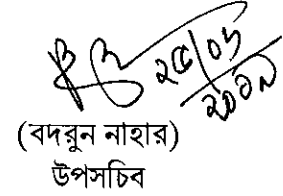 ২৫/০৬
২০১৯
(বদরুন নাহার)
উপসচিব